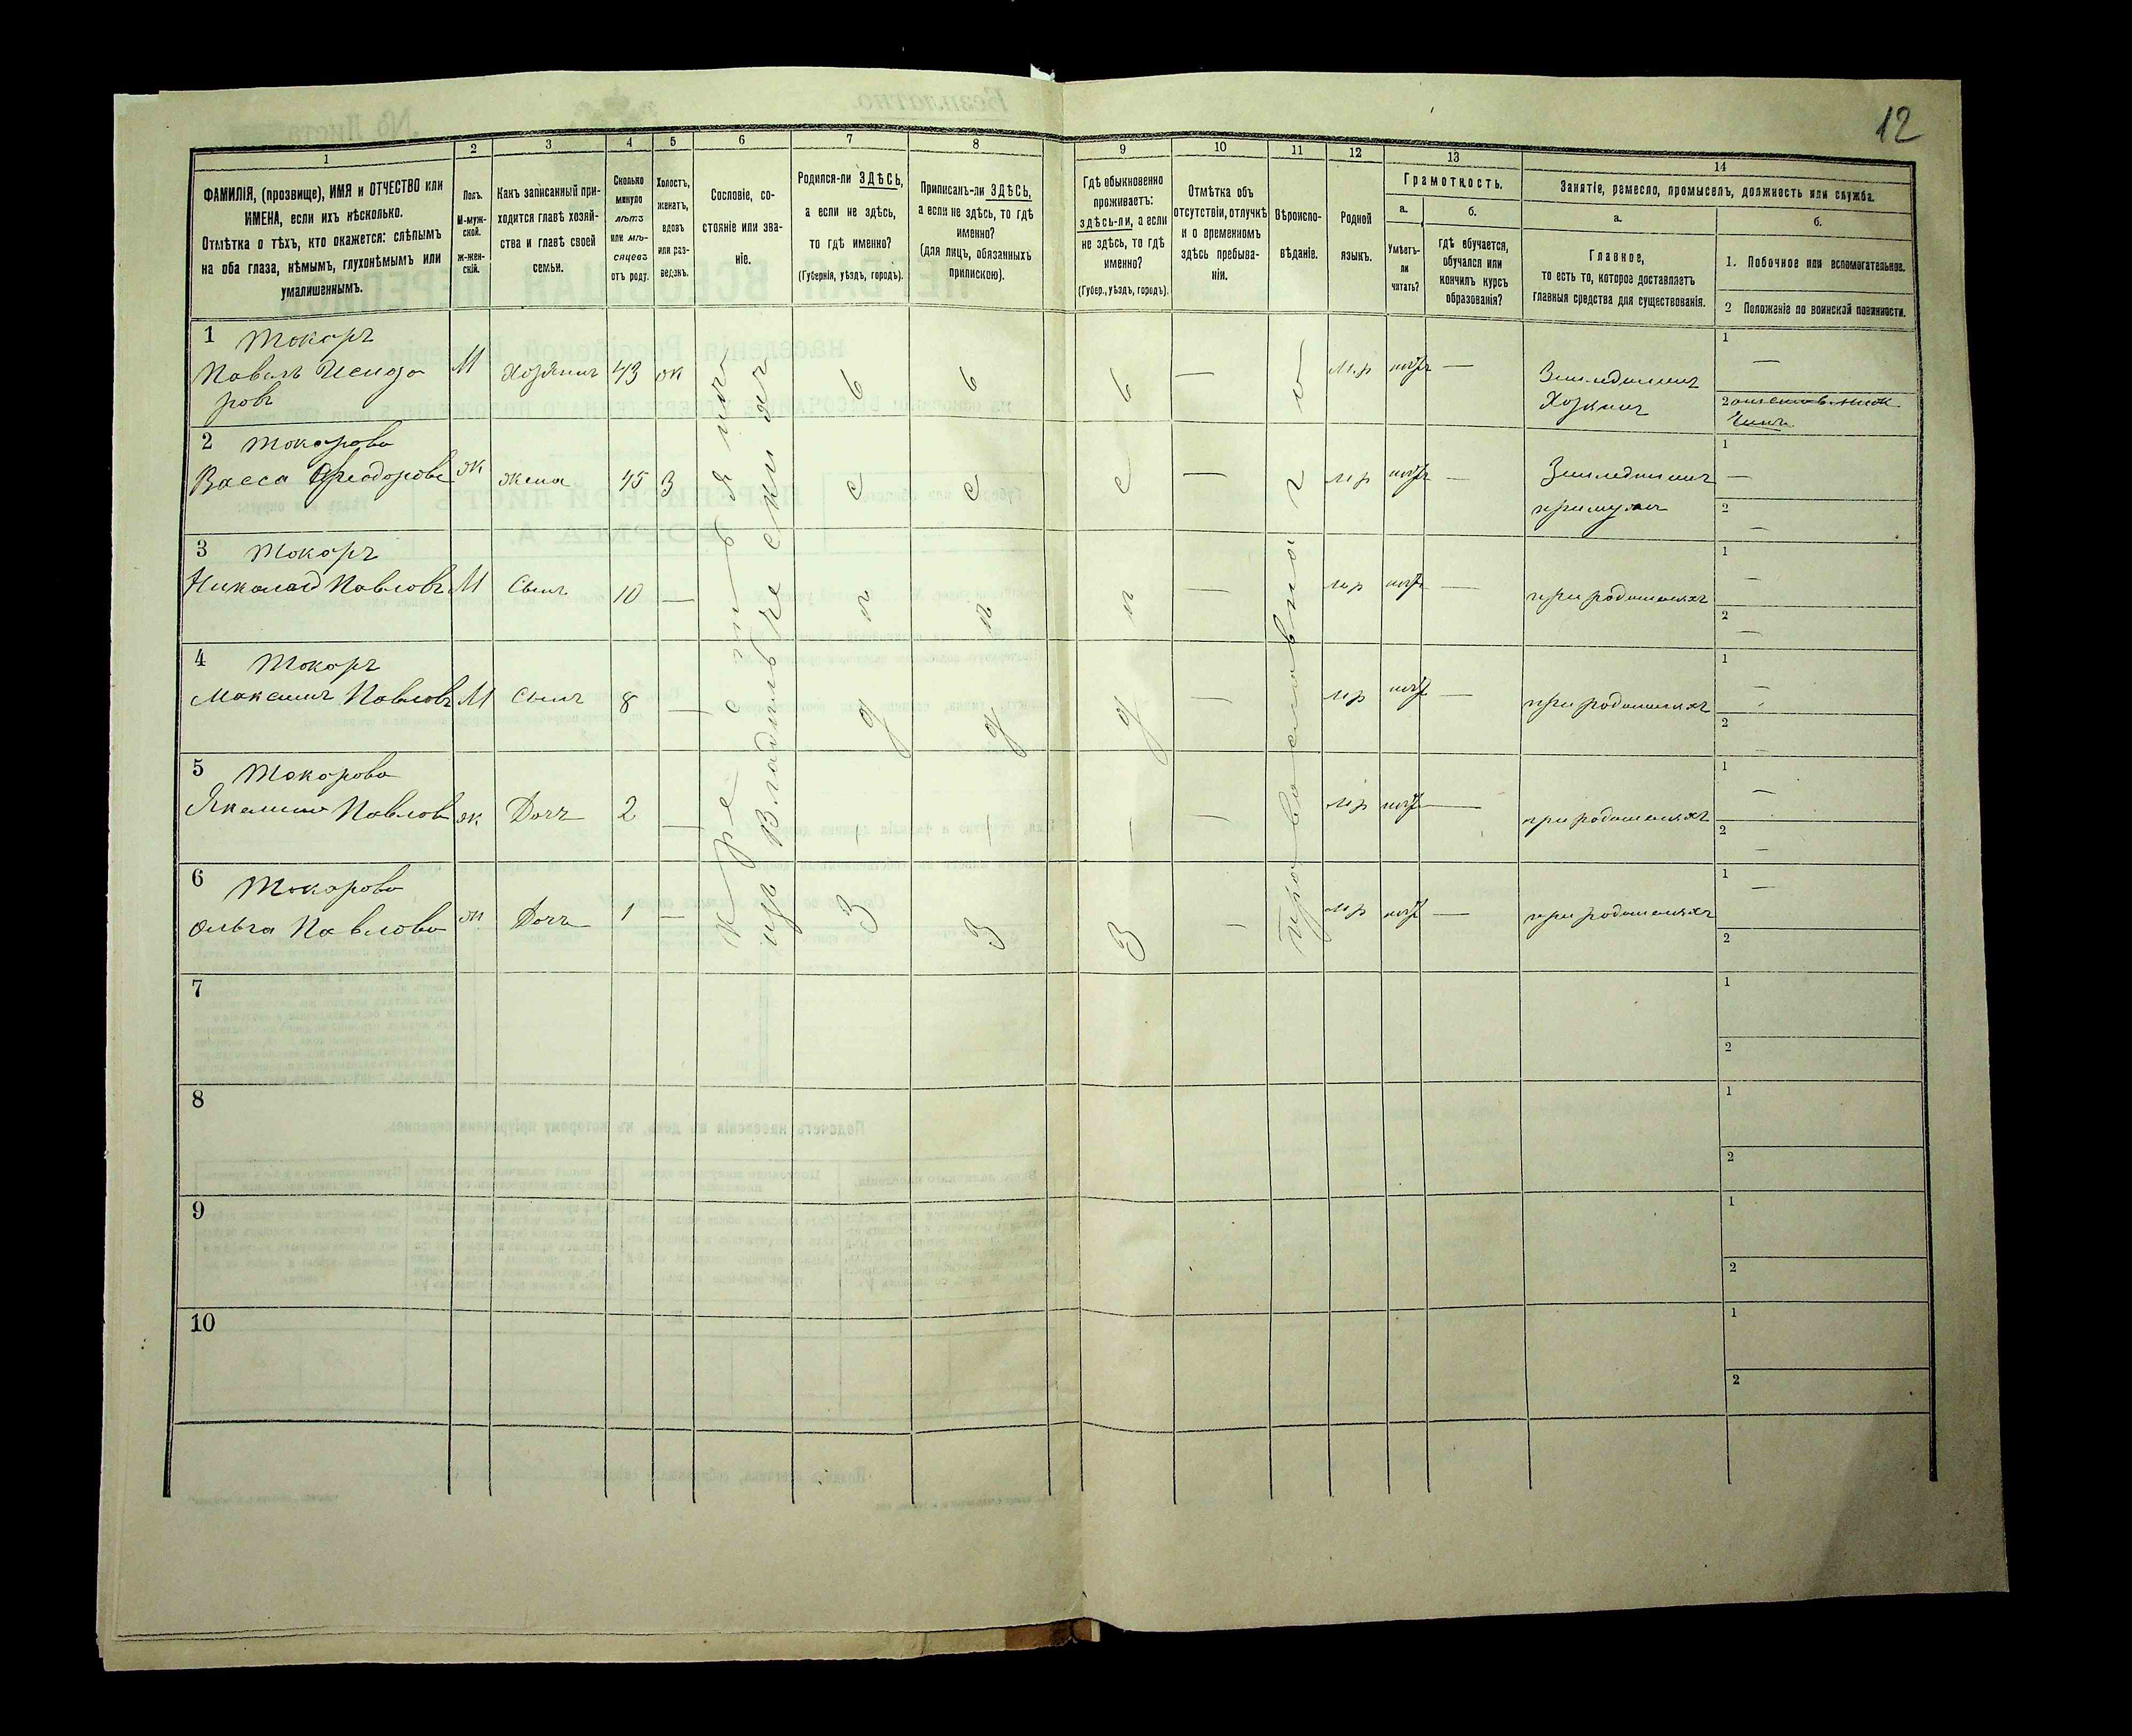 12
1
2
3
4
5
6
7
8
9
10
11
12
13
14
ФАМИЛІЯ, (прозвище), ИМЯ и ОТЧЕСТВО или
ИМЕНА, если ихъ нѣсколько.
Отмѣтка о тѣхъ, кто окажется: слѣпымъ
на оба глаза, нѣмымъ, глухонѣмымъ или
умалишеннымъ.
Полъ.
М-муж-
ской.
Ж-жен-
скій.
Какъ записанный при-
ходится главѣ хозяй-
ства и главѣ своей
семьи.
Сколько
минуло
лѣтъ
или мѣ-
сяцевъ
отъ роду.
Холостъ,
женатъ,
вдовъ
или раз-
веденъ.
Сословіе, со-
стояніе или зва-
ніе.
Родился-ли ЗДѢСЬ,
а если не здѣсь,
то гдѣ именно?
(Губернія, уѣздъ, городъ).
Приписанъ-ли ЗДѢСЬ,
а если не здѣсь, то гдѣ
именно?
(для лицъ, обязанныхъ
припискою).
Гдѣ обыкновенно
проживаетъ:
здѣсь-ли, а если
не здѣсь, то гдѣ
именно?
(Губер., уѣздъ, городъ).
Отмѣтка объ
отсутствіи, отлучкѣ
и о временномъ
здѣсь пребыва-
ніи.
Вѣроиспо-
вѣданіе.
Родной
языкъ.
Грамотность.
а.
Умѣетъ-
ли
читать?
б.
гдѣ обучается,
обучался или
кончилъ курсъ
образованія?
Занятіе, ремесло, промыселъ, должность или служба.
а.
Главное,
то есть то, которое доставляетъ
главныя средства для существованія.
б.
1. Побочное или вспомогательное.
2 Положеніе по воинской повинности.
1 Токарь
Павелъ Исидо
ровъ
М Хозяинъ 43 ж
Хозяинъ
2 Токарова
Васса Феодорова
ж жена 45 З
3 Токарь
Николай Павловъ
М Сынъ 10 — при родителяхъ
4 Токарь
Максимъ Павловъ
М Сынъ 8 — при родителяхъ
5 Токарова
Павлова
ж Дочь 2 — при родителяхъ
6 Токарова
Ольга Павлова
ж Дочь 1 — при родителяхъ
7
8
9
10
крестьянинъ
изъ Владѣльческихъ
здѣсь
здѣсь
здѣсь
православного